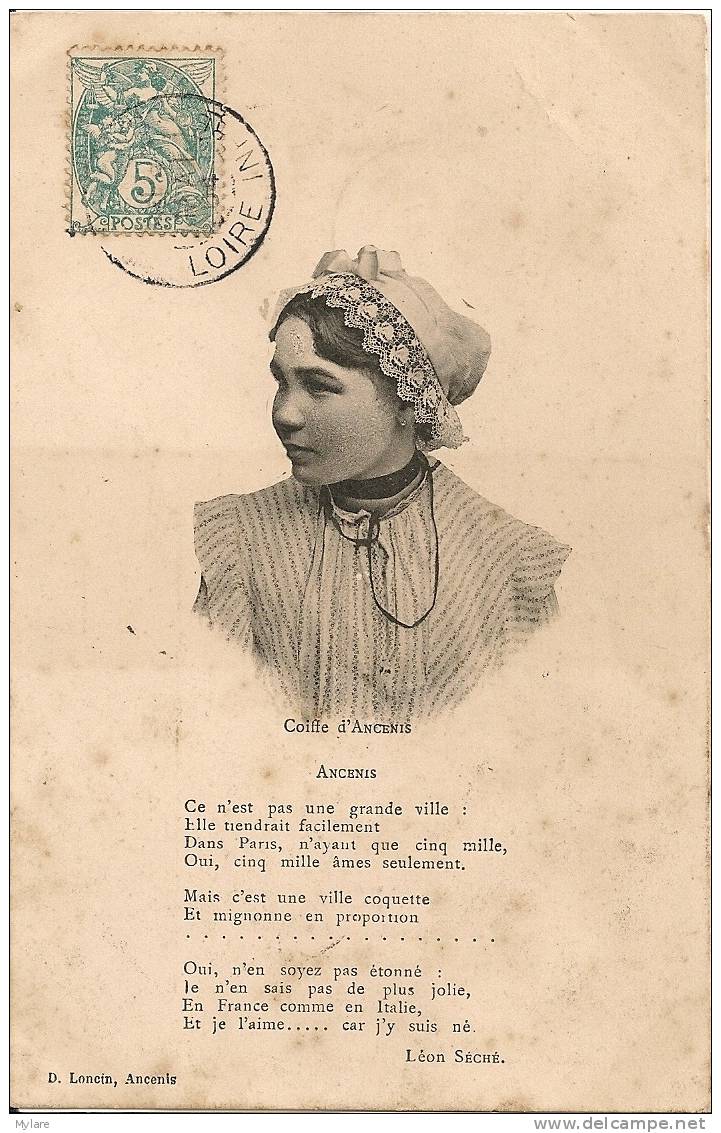 5c
POSTES
LOIRE INF
Coiffe d'ANCENIS
ANCENIS
Ce n'est pas une grande ville :
Elle tiendrait facilement
Dans Paris, n'ayant que cinq mille,
Oui, cinq mille âmes seulement.
Mais c'est une ville coquette
Et mignonne en proportion
. . . . . . . . . . . . . . . . . .
Oui, n'en soyez pas étonné :
Je n'en sais pas de plus jolie,
En France comme en Italie,
Et je l'aime..... car j'y suis né.
Léon SÉCHÉ.
D. Loncin, Ancenis
Mylare
delcampe.net